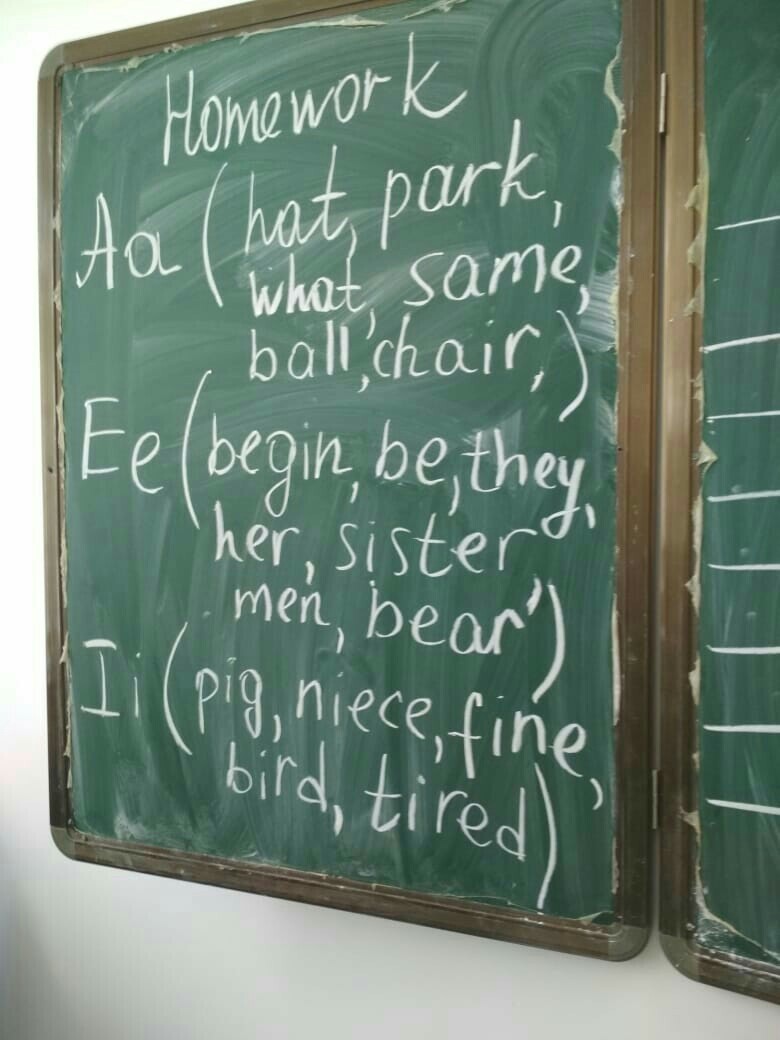 Homework
Aa (hat, park,
what, same,
ball, chair,)
Ee (begin, be, they,
her, sister
men, bear')
Ii (pig, niece, fine,
bird, tired)